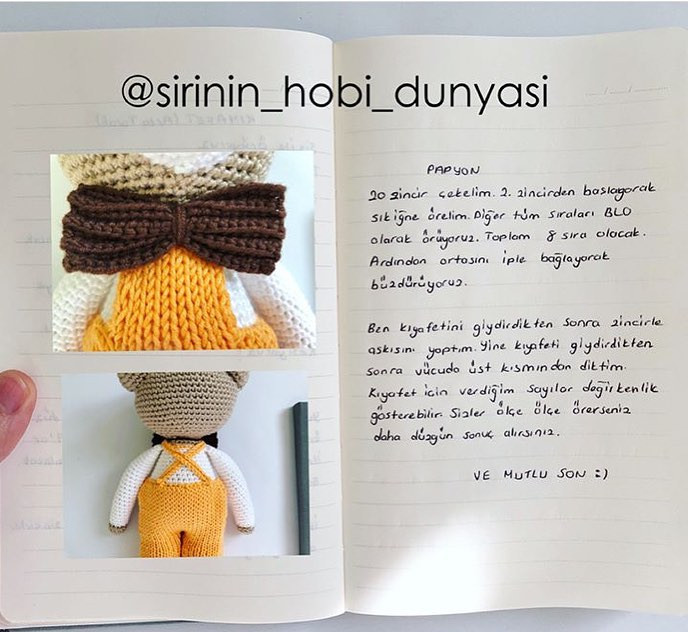 @sirinin_hobi_dunyasi
PAPYON
20 zincir çekelim. 2. zincirden başlayarak
sık iğne örelim. Diğer tüm sıraları BLO
olarak örüyoruz. Toplam 8 sıra olacak.
Ardından ortasını iple bağlayarak
büzdürüyoruz.
Ben kıyafetini giydirdikten sonra zincirle
askısını yaptım. Yine kıyafeti giydirdikten
sonra vücuda üst kısmından diktim.
Kıyafet için verdiğim sayılar değişkenlik
gösterebilir. Sizler ölçe ölçe örerseniz
daha düzgün sonuç alırsınız.
VE MUTLU SON :)